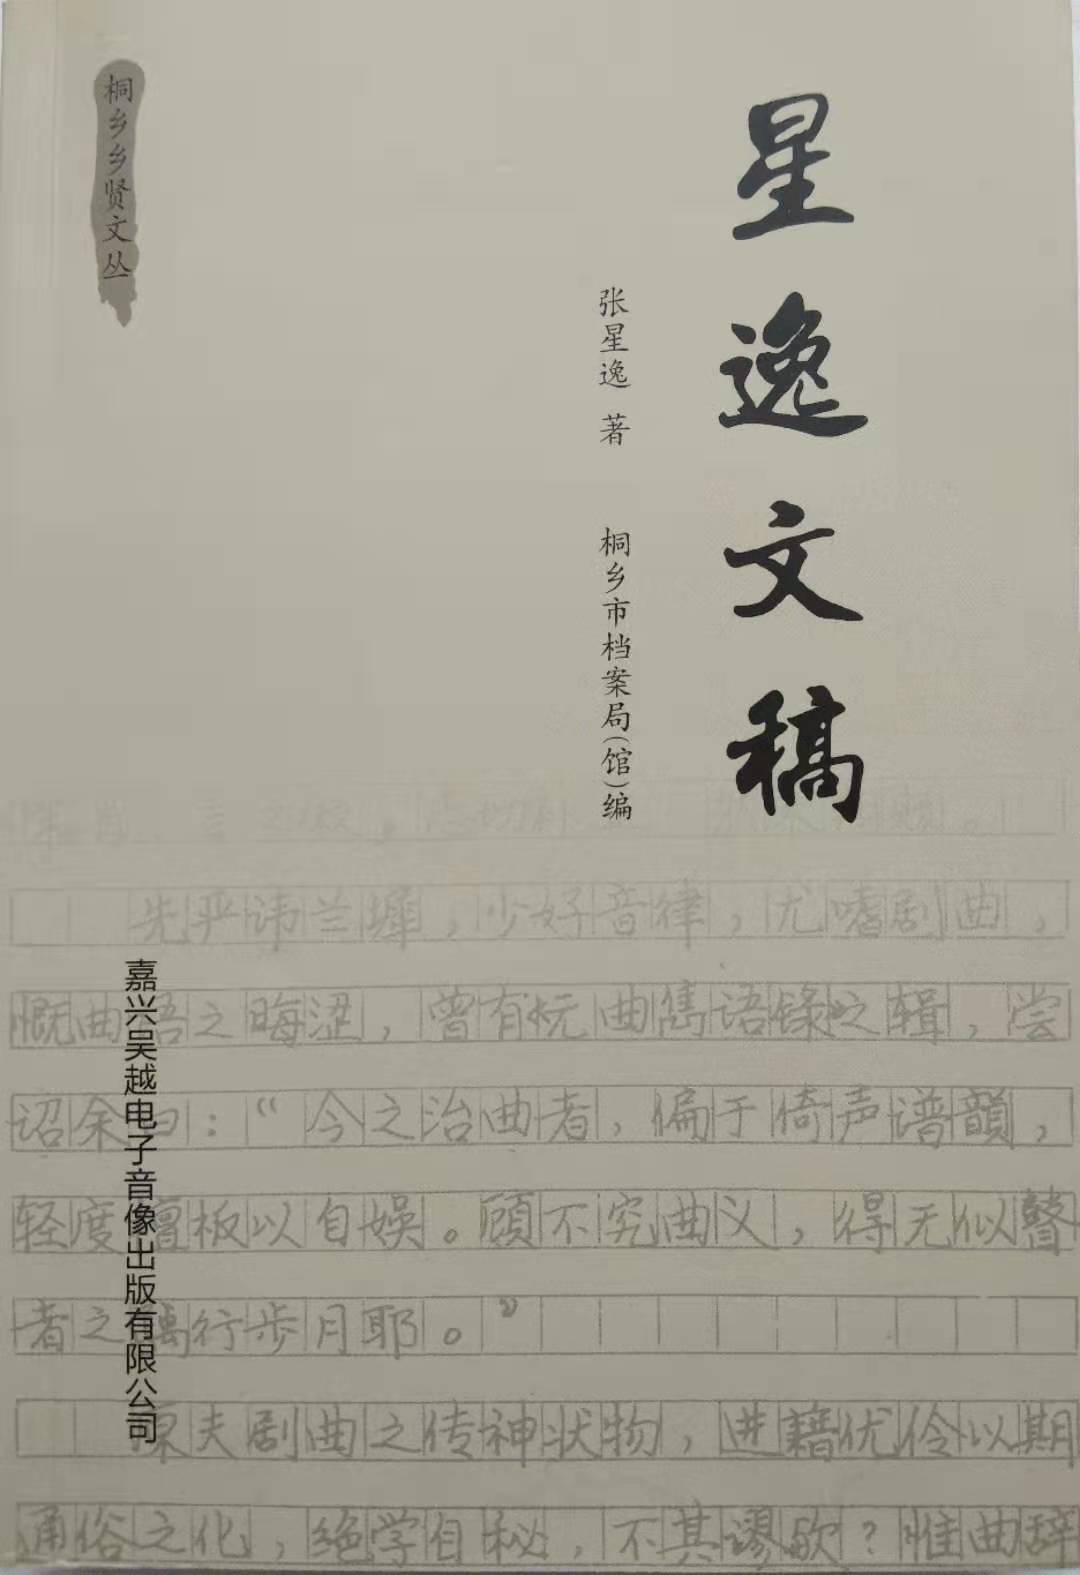 星逸文稿
张星逸 著
桐乡市档案局(馆)编
桐乡乡贤文丛
嘉兴吴越电子音像出版有限公司
先严讳兰墀，少好音律，尤嗜剧曲，
慨曲语之晦涩，曾有 曲隽语录之辑，尝
诏余曰：“今之治曲者，偏于倚声谱韻，
轻度 板以自娱。顾不究曲义，得无似瞽
者之 行步月耶。”
原夫剧曲之传神状物，进藉优伶以期
通俗之化，绝学自秘，不其谬欤？惟曲辞